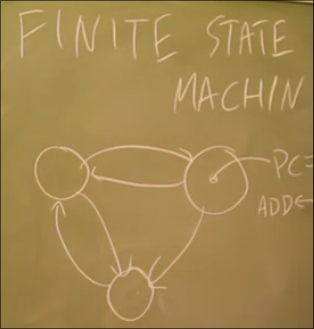 FINITE STATE
MACHIN
PC=
ADD←